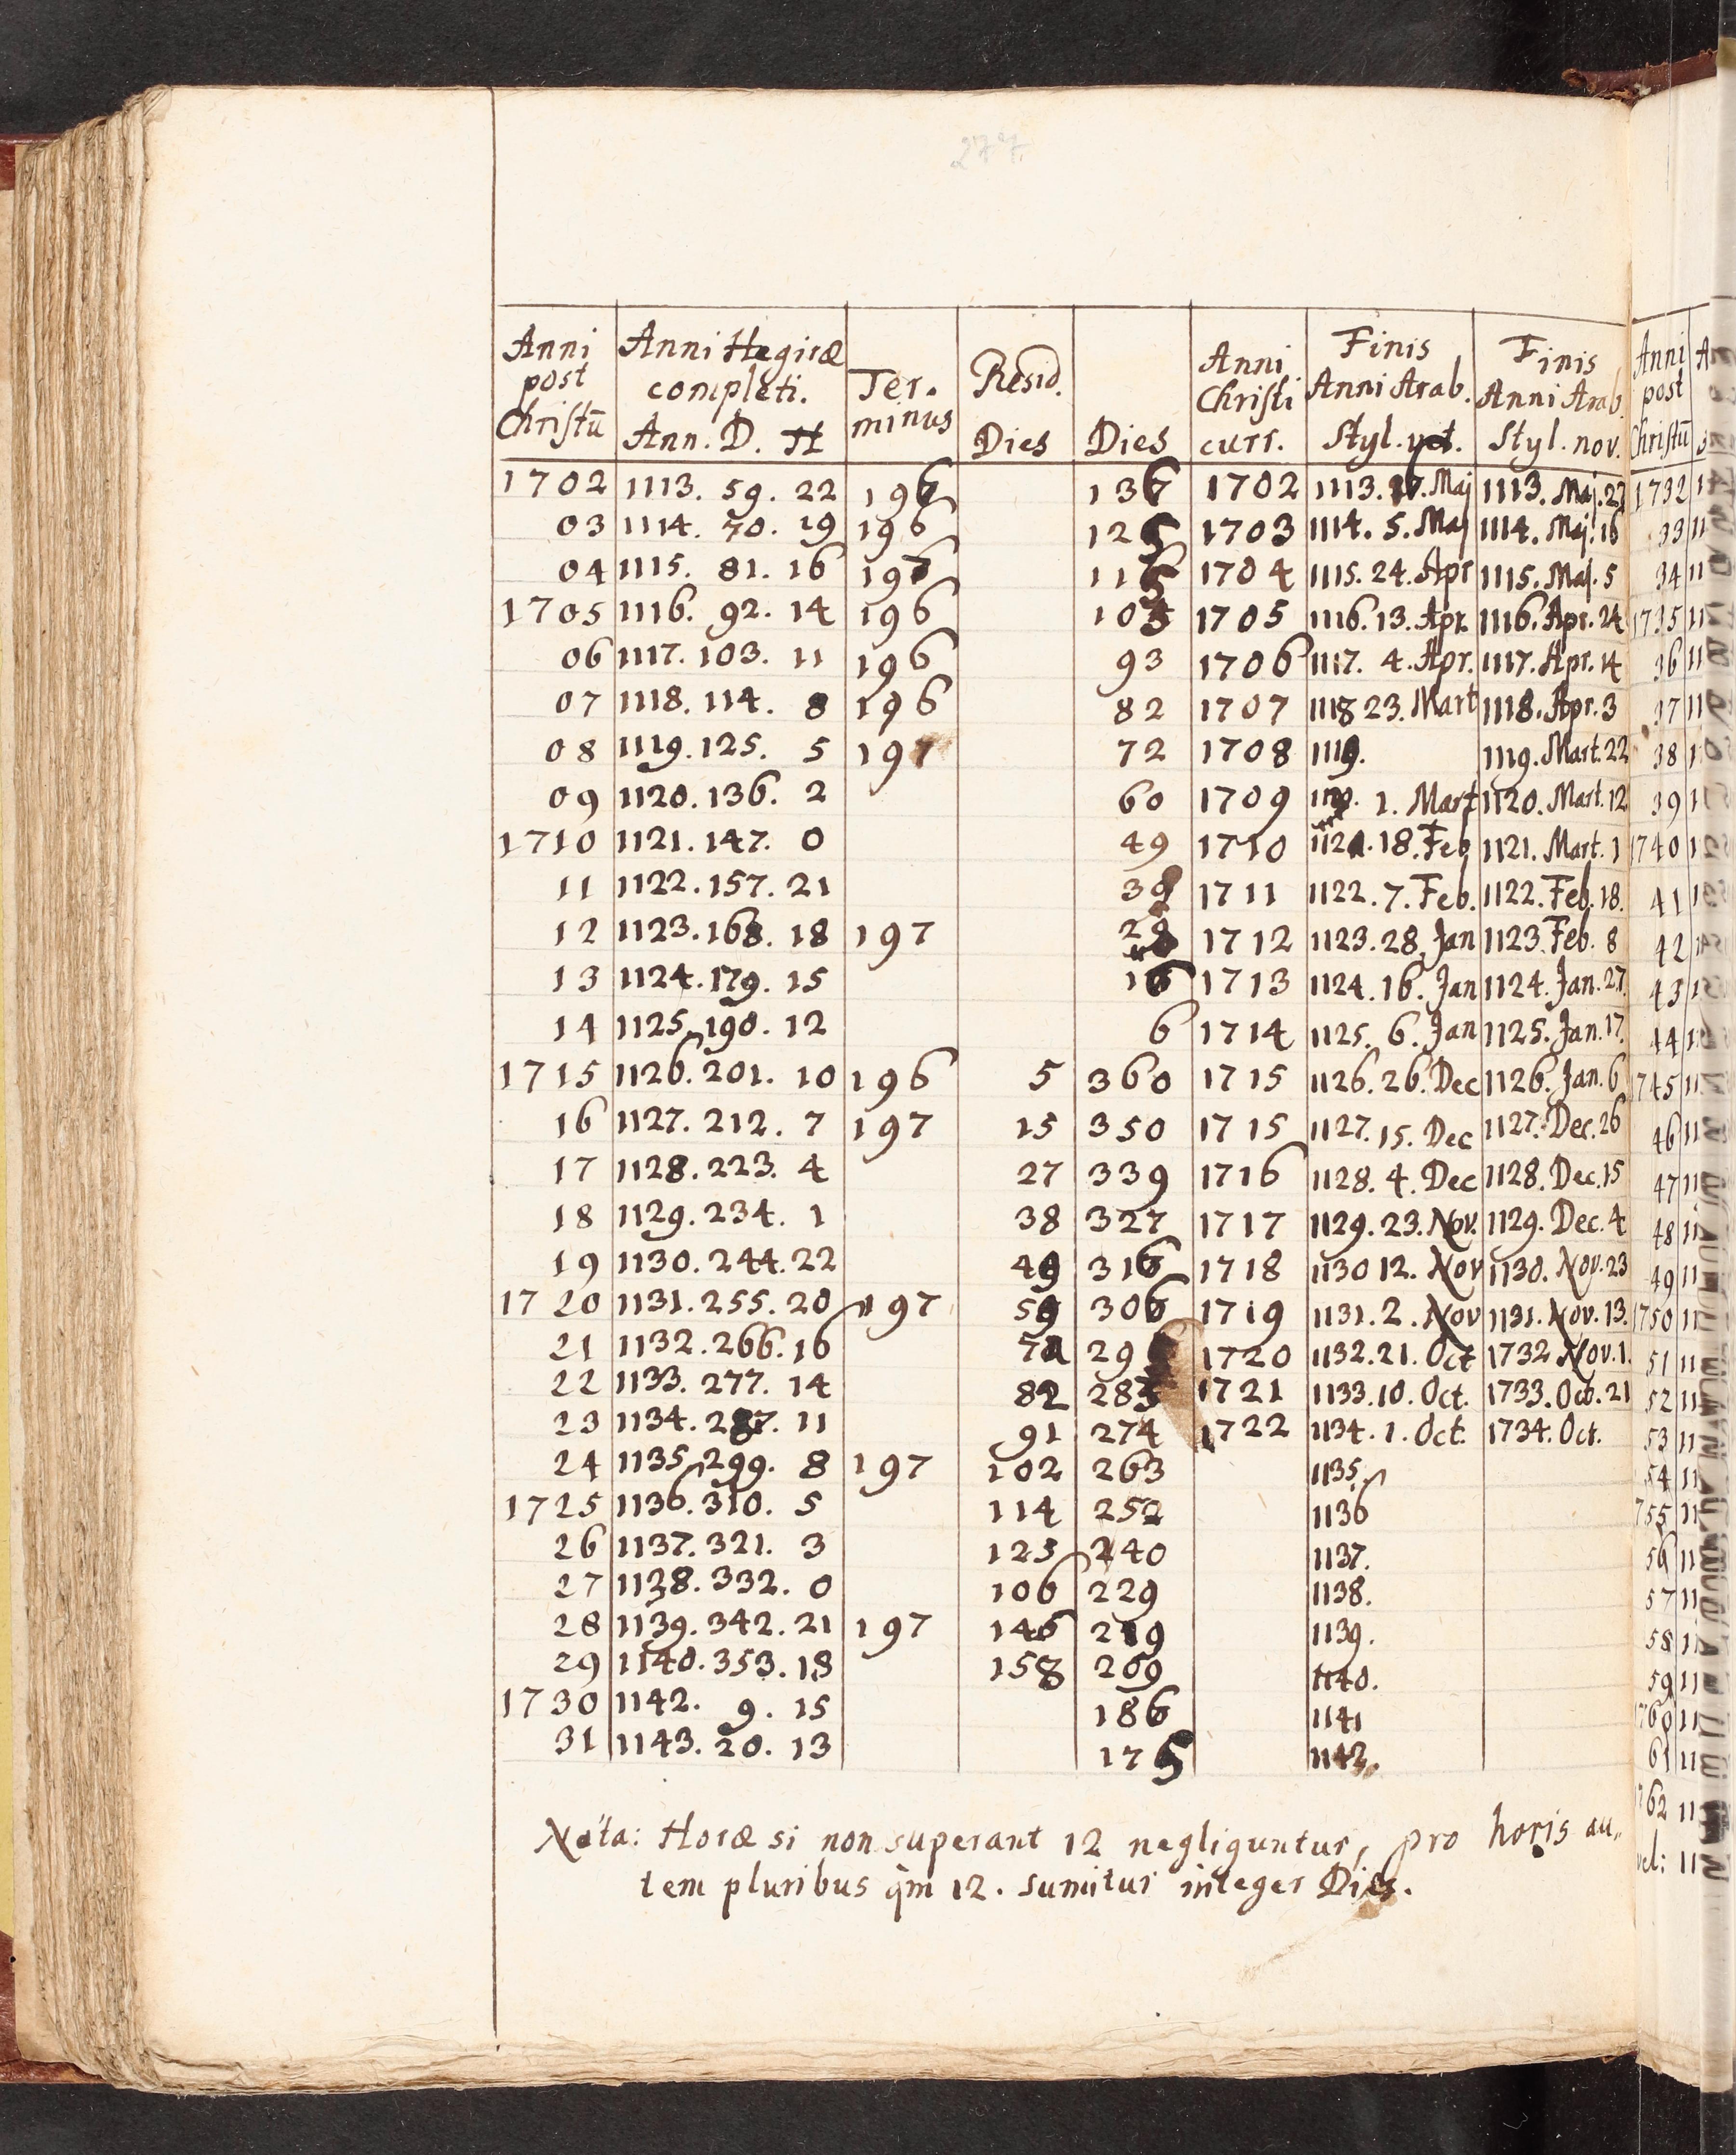 277.
Anni post Christū | Anni Hegiræ completi. Ann. D. H | Ter. minus | Resid. Dies | Dies | Anni Christi curr. | Finis Anni Arab. Styl. vet. | Finis Anni Arab. Styl. nov.
1702 | 1113. 59. 22 | 196 | | 136 | 1702 | 1113. Maj | 1113. Maj. 27
03 | 1114. 70. 19 | 196 | | 125 | 1703 | 1114. 5. Maj | 1114. Maj. 16
04 | 1115. 81. 16 | 196 | | 115 | 1704 | 1115. 24. Apr | 1115. Maj. 5
1705 | 1116. 92. 14 | 196 | | 103 | 1705 | 1116. 13. Apr. | 1116. Apr. 24
06 | 1117. 103. 11 | 196 | | 93 | 1706 | 1117. 4. Apr. | 1117. Apr. 14
07 | 1118. 114. 8 | 196 | | 82 | 1707 | 1118 23. Mart | 1118. Apr. 3
08 | 1119. 125. 5 | 197 | | 72 | 1708 | 1119. | 1119. Mart. 22
09 | 1120. 136. 2 | | | 60 | 1709 | 1. Mart | 1120. Mart. 12
1710 | 1121. 147. 0 | | | 49 | 1710 | 1121. 18. Feb | 1121. Mart. 1
11 | 1122. 157. 21 | | | 39 | 1711 | 1122. 7. Feb. | 1122. Feb. 18.
12 | 1123. 168. 18 | 197 | | 28 | 1712 | 1123. 28. Jan | 1123. Feb. 8
13 | 1124. 179. 15 | | | 16 | 1713 | 1124. 16. Jan | 1124. Jan. 27.
14 | 1125. 190. 12 | | | 6 | 1714 | 1125. 6. Jan | 1125. Jan. 17.
1715 | 1126. 201. 10 | 196 | 5 | 360 | 1715 | 1126. 26. Dec | 1126. Jan. 6
16 | 1127. 212. 7 | 197 | 15 | 350 | 1715 | 1127. 15. Dec | 1127. Dec. 26
17 | 1128. 223. 4 | | 27 | 339 | 1716 | 1128. 4. Dec | 1128. Dec. 15
18 | 1129. 234. 1 | | 38 | 327 | 1717 | 1129. 23. Nov. | 1129. Dec. 4
19 | 1130. 244. 22 | | 49 | 316 | 1718 | 1130 12. Nov | 1130. Nov. 23
1720 | 1131. 255. 20 | 197 | 59 | 306 | 1719 | 1131. 2. Nov | 1131. Nov. 13.
21 | 1132. 266. 16 | | | | 1720 | 1132. 21. Oct | 1732 Nov. 1.
22 | 1133. 277. 14 | | 82 | 283 | 1721 | 1133. 10. Oct. | 1733. Oct. 21
23 | 1134. 287. 11 | | 91 | 274 | 1722 | 1134. 1. Oct. | 1734. Oct.
24 | 1135. 299. 8 | 197 | 102 | 263 | | 1135. |
1725 | 1136. 310. 5 | | 114 | 252 | | 1136 |
26 | 1137. 321. 3 | | 125 | 240 | | 1137. |
27 | 1138. 332. 0 | | 106 | 229 | | 1138. |
28 | 1139. 342. 21 | 197 | 146 | 219 | | 1139. |
29 | 1140. 353. 18 | | 158 | 209 | | 1140. |
1730 | 1142. 9. 15 | | | 186 | | 1141 |
31 | 1143. 20. 13 | | | 175 | | 1142. |
Nota: Horæ si non superant 12 negliguntur, pro horis au„
tem pluribus qm 12. sumitur integer Dies.
Anni post Christū
1732
33
34
1735
36
37
38
39
1740
41
42
43
44
1745
46
47
48
49
1750
51
52
53
54
755
56
57
58
59
760
61
762
vel: